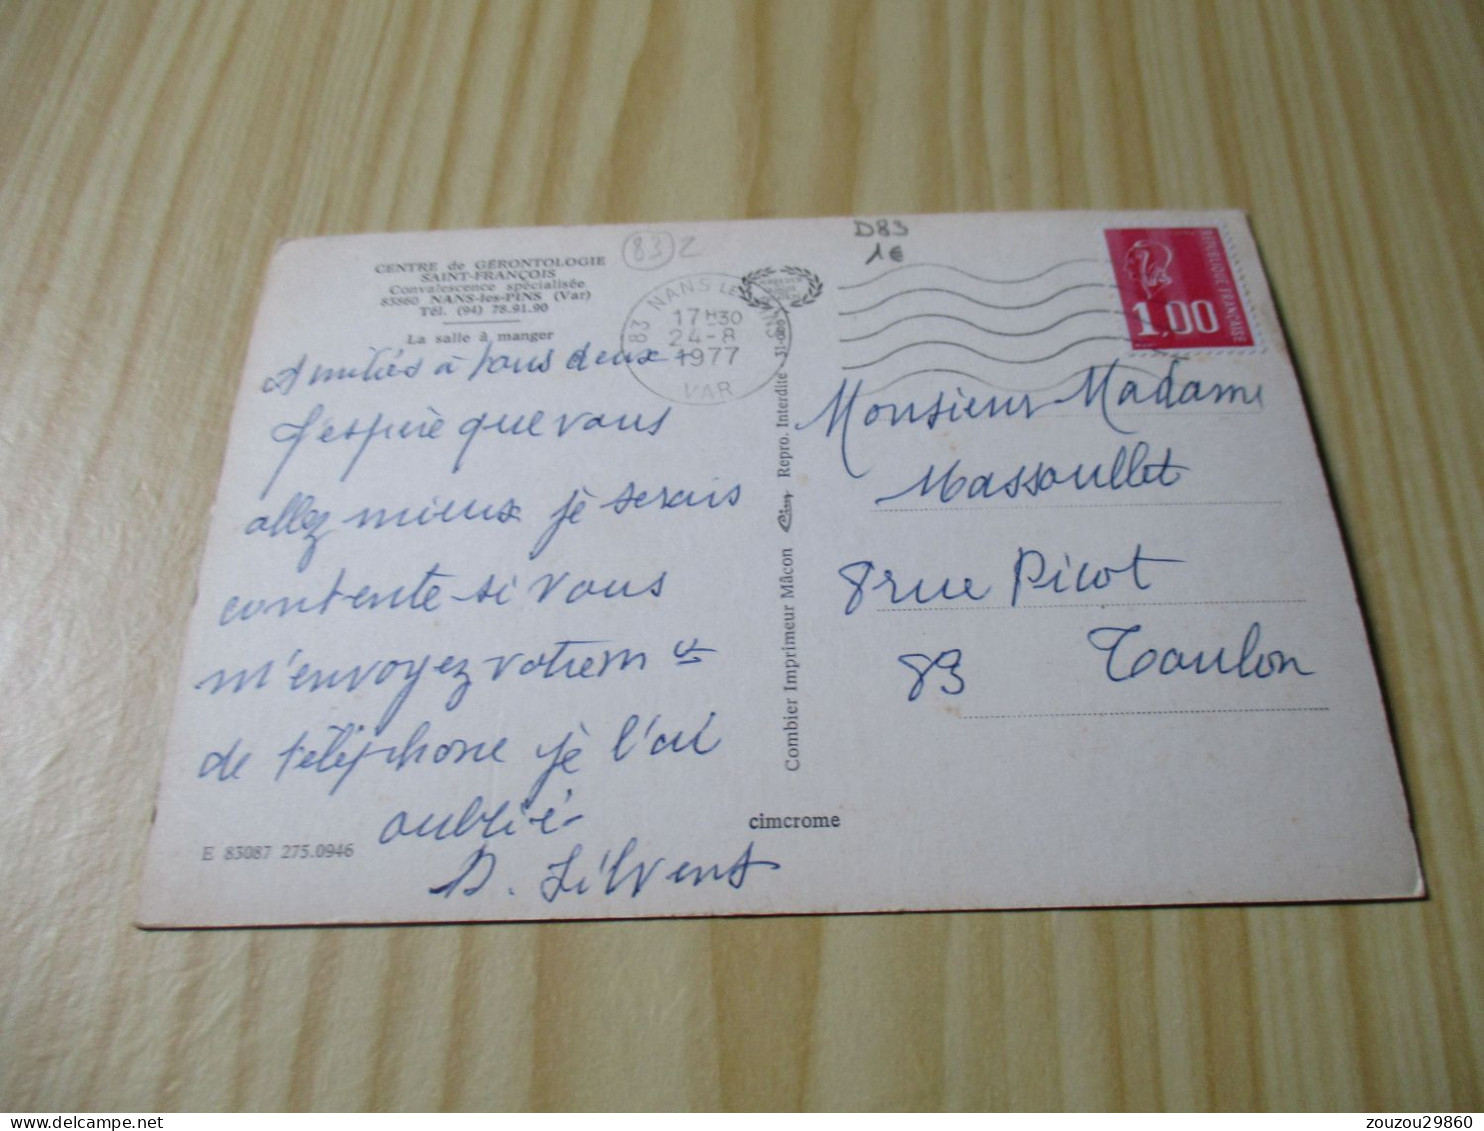 D83
1€
83 2
CENTRE de GÉRONTOLOGIE
SAINT-FRANÇOIS
Convalescence spécialisée
83860 NANS-les-PINS (Var)
Tél. (94) 78.91.90
La salle à manger
83 NANS LES PINS
17H30
24-8
1977
VAR
REPUBLIQUE FRANÇAISE
1,00
Amitiés à vous deux
J'espère que vous
allez mieux je serais
contente si vous
m'envoyez votre
de téléphone je l'ai
oublié
D. Silvent
Monsieur Madame
Massoullet
8 rue Picot
83 Toulon
Combier Imprimeur Mâcon Cim Repro. Interdite
cimcrome
E 83087 275.0946
zouzou29860